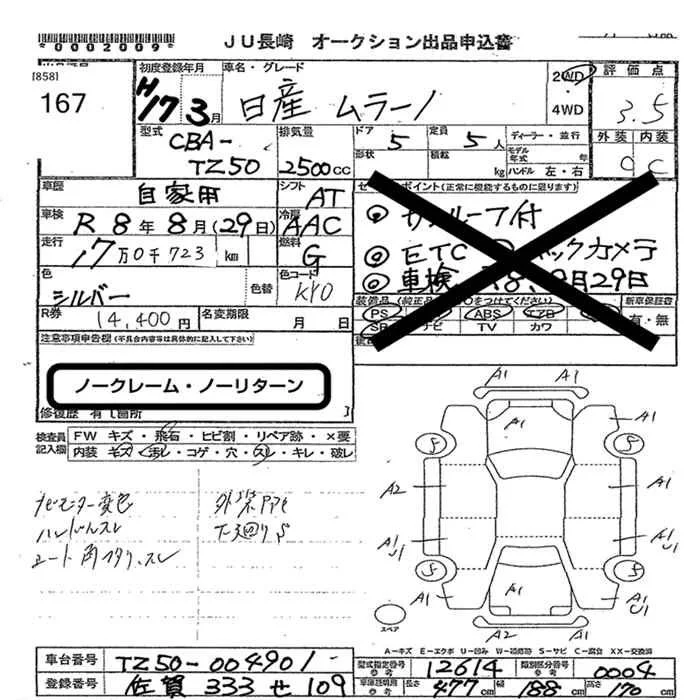 *0002009*
JU長崎 オークション出品申込書
[858]
167
初度登録年月 H17 3月
車名・グレード 日産 ムラーノ
2WD
4WD
評価点 3.5
外装 内装
C
型式 CBA-TZ50
排気量 2500cc
ドア 5
形状
定員 5人
積載 kg
ディーラー・並行
モデル年式 年式
ハンドル 左・右
車歴 自家用
シフト AT
車検 R 8年8月(29日)
冷房 AAC
走行 17万0千723 km
燃料 G
色 シルバー
色替
色コード KY0
R券 14,400円
名変期限 月 日
ポイント(正常に機能するものに限ります)
サンルーフ付
ETC バックカメラ
車検 R8 8月29日
装備品
PS ABS エアB
SR ナビ TV カワ
新車保証書 有・無
注意事項申告欄(不具合内容等は具体的に記入して下さい)
ノークレーム・ノーリターン
修復歴 有 箇所
検査員記入欄
FW キズ・飛石・ヒビ割・リペア跡・×要
内装 キズ・汚レ・コゲ・穴・スレ・キレ・破レ
ナビモニター変色
ハンドルスレ
シート
A1 A1
A1 A1
S S
A2 A1
A1 U1 A1 U1
S S
A1 A1 A1 U1
A2 A1
スペア
A-キズ E-エクボ U-凹み W-補修跡 S-サビ C-腐食 XX-交換済
車台番号 TZ50-004901
型式指定番号 参考 12614
類別区分番号 参考 0004
登録番号 佐賀 333 せ 109
車庫証明用 参考 長さ 477cm 幅 188cm 高さ 170cm